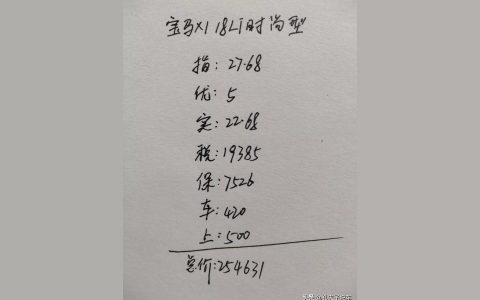 宝马X1 18Li时尚型
指: 27.68
优: 5
实: 22.68
税: 19385
保: 7526
车: 420
上: 500
总价: 254631